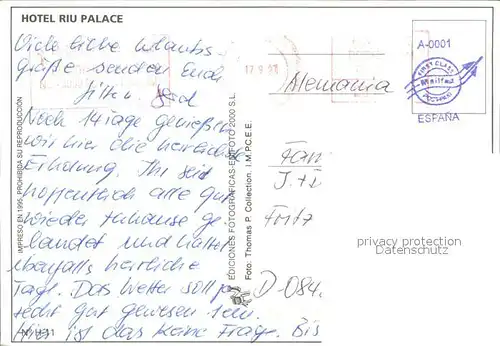 HOTEL RIU PALACE
Viele liebe Urlaubs-
grüße senden Euch
Noch 14 Tage genießen
wir hier die herrliche
Erholung. Ihr seid
hoffentlich alle gut
wieder zuhause ge-
landet und hattet
ebenfalls herrliche
Tage. Das Wetter soll ja
recht gut gewesen sein.
ist das keine Frage. Bis
IMPRESO EN 1995. PROHIBIDA SU REPRODUCCIÓN
EDICIONES FOTOGRAFICAS-EXFOTO 2000 S.L.
Foto: Thomas P. Collection. I.M.P.C.E.E.
17.9.97
Alemania
A-0001
FIRST CLASS
Mailfast
POSTAGE
ESPAÑA
Fam
Fritz
D-084
privacy protection
Datenschutz